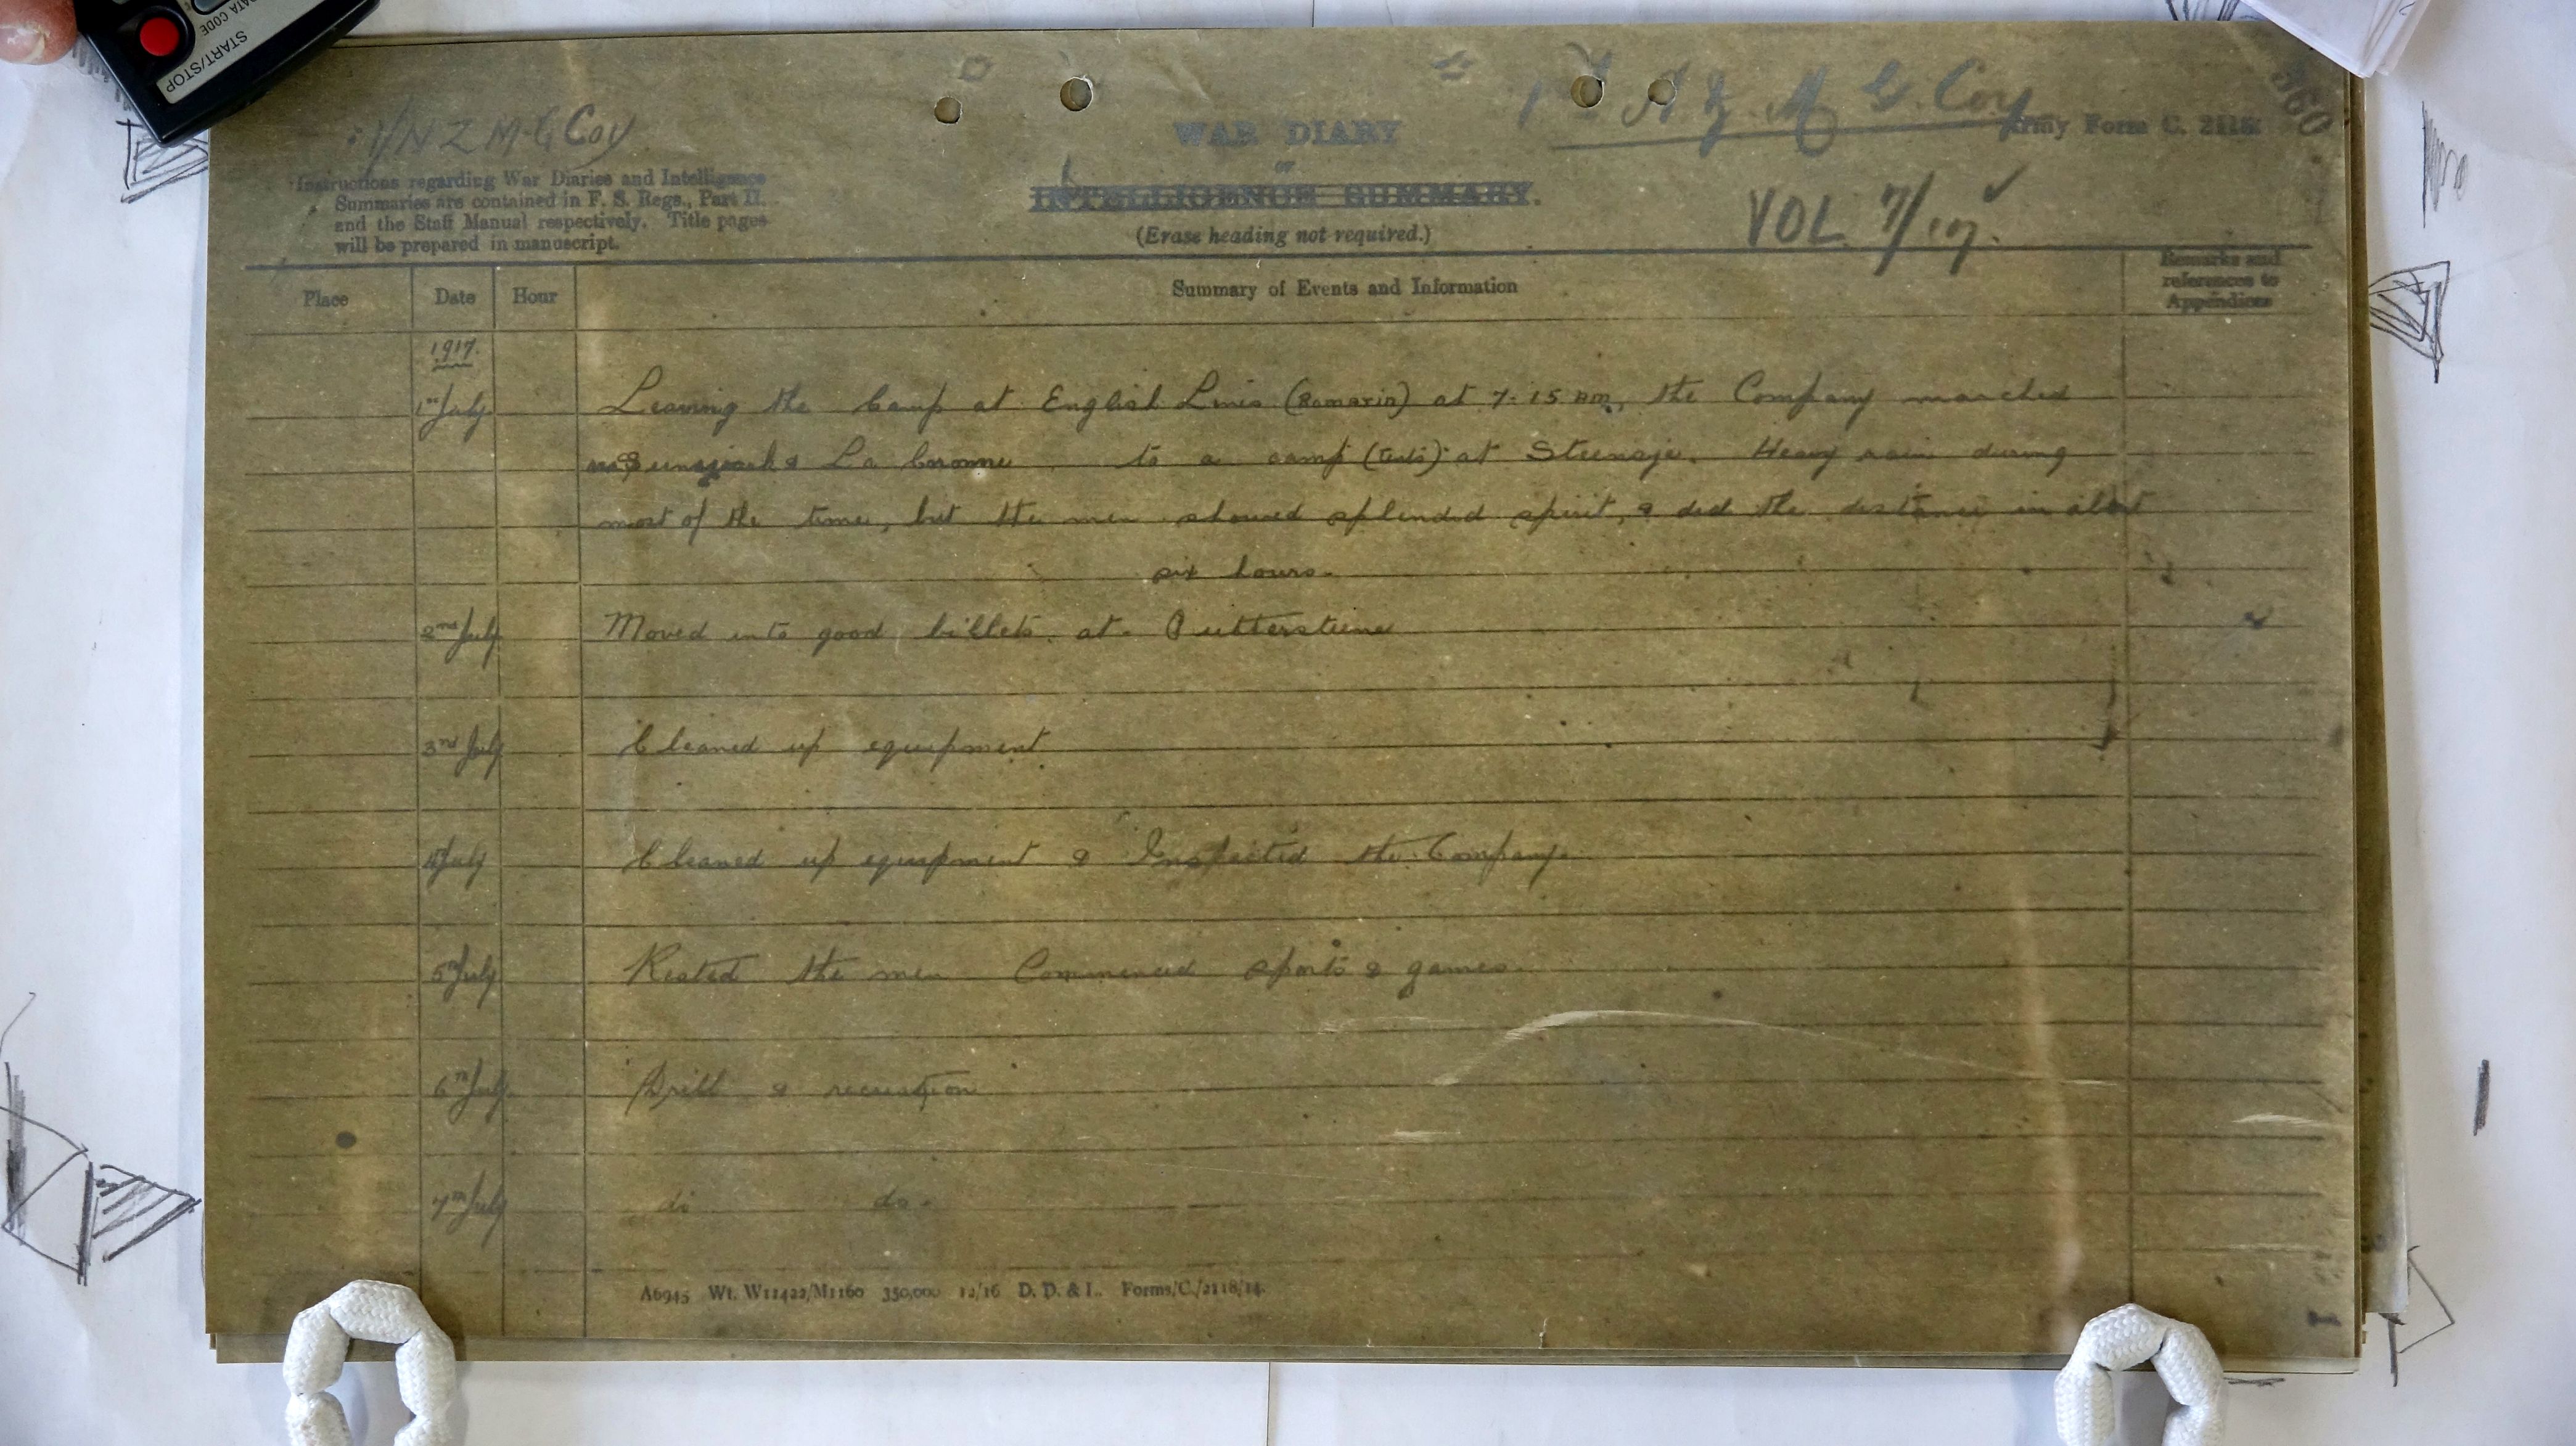 START/STOP
DATA CODE
1/N Z M. G Coy
1st N Z M G. Coy
Army Form C. 2118
WAR DIARY
or
INTELLIGENCE SUMMARY.
(Erase heading not required.)
VOL. 7/17.
Instructions regarding War Diaries and Intelligence
Summaries are contained in F. S. Regs., Part II.
and the Staff Manual respectively. Title pages
will be prepared in manuscript.
Place Date Hour Summary of Events and Information Remarks and
references to
Appendices
1917.
1st July Leaving the Camp at English Lines (Romarin) at 7-15 am, the Company marched
La Creche to a camp (tents) at Steenwerck. Heavy rain during
most of the time, but the men showed splendid spirit, & did the distance in about
six hours.
2nd July Moved into good billets at Outtersteene
3rd July Cleaned up equipment
4th July Cleaned up equipment & Inspected the Company.
5th July Rested the men Commenced sports & games.
6th July Drill & recreation
7th July do do.
A6945 Wt. W11422/M1160 350,000 12/16 D. D. & L. Forms/C./2118/14.